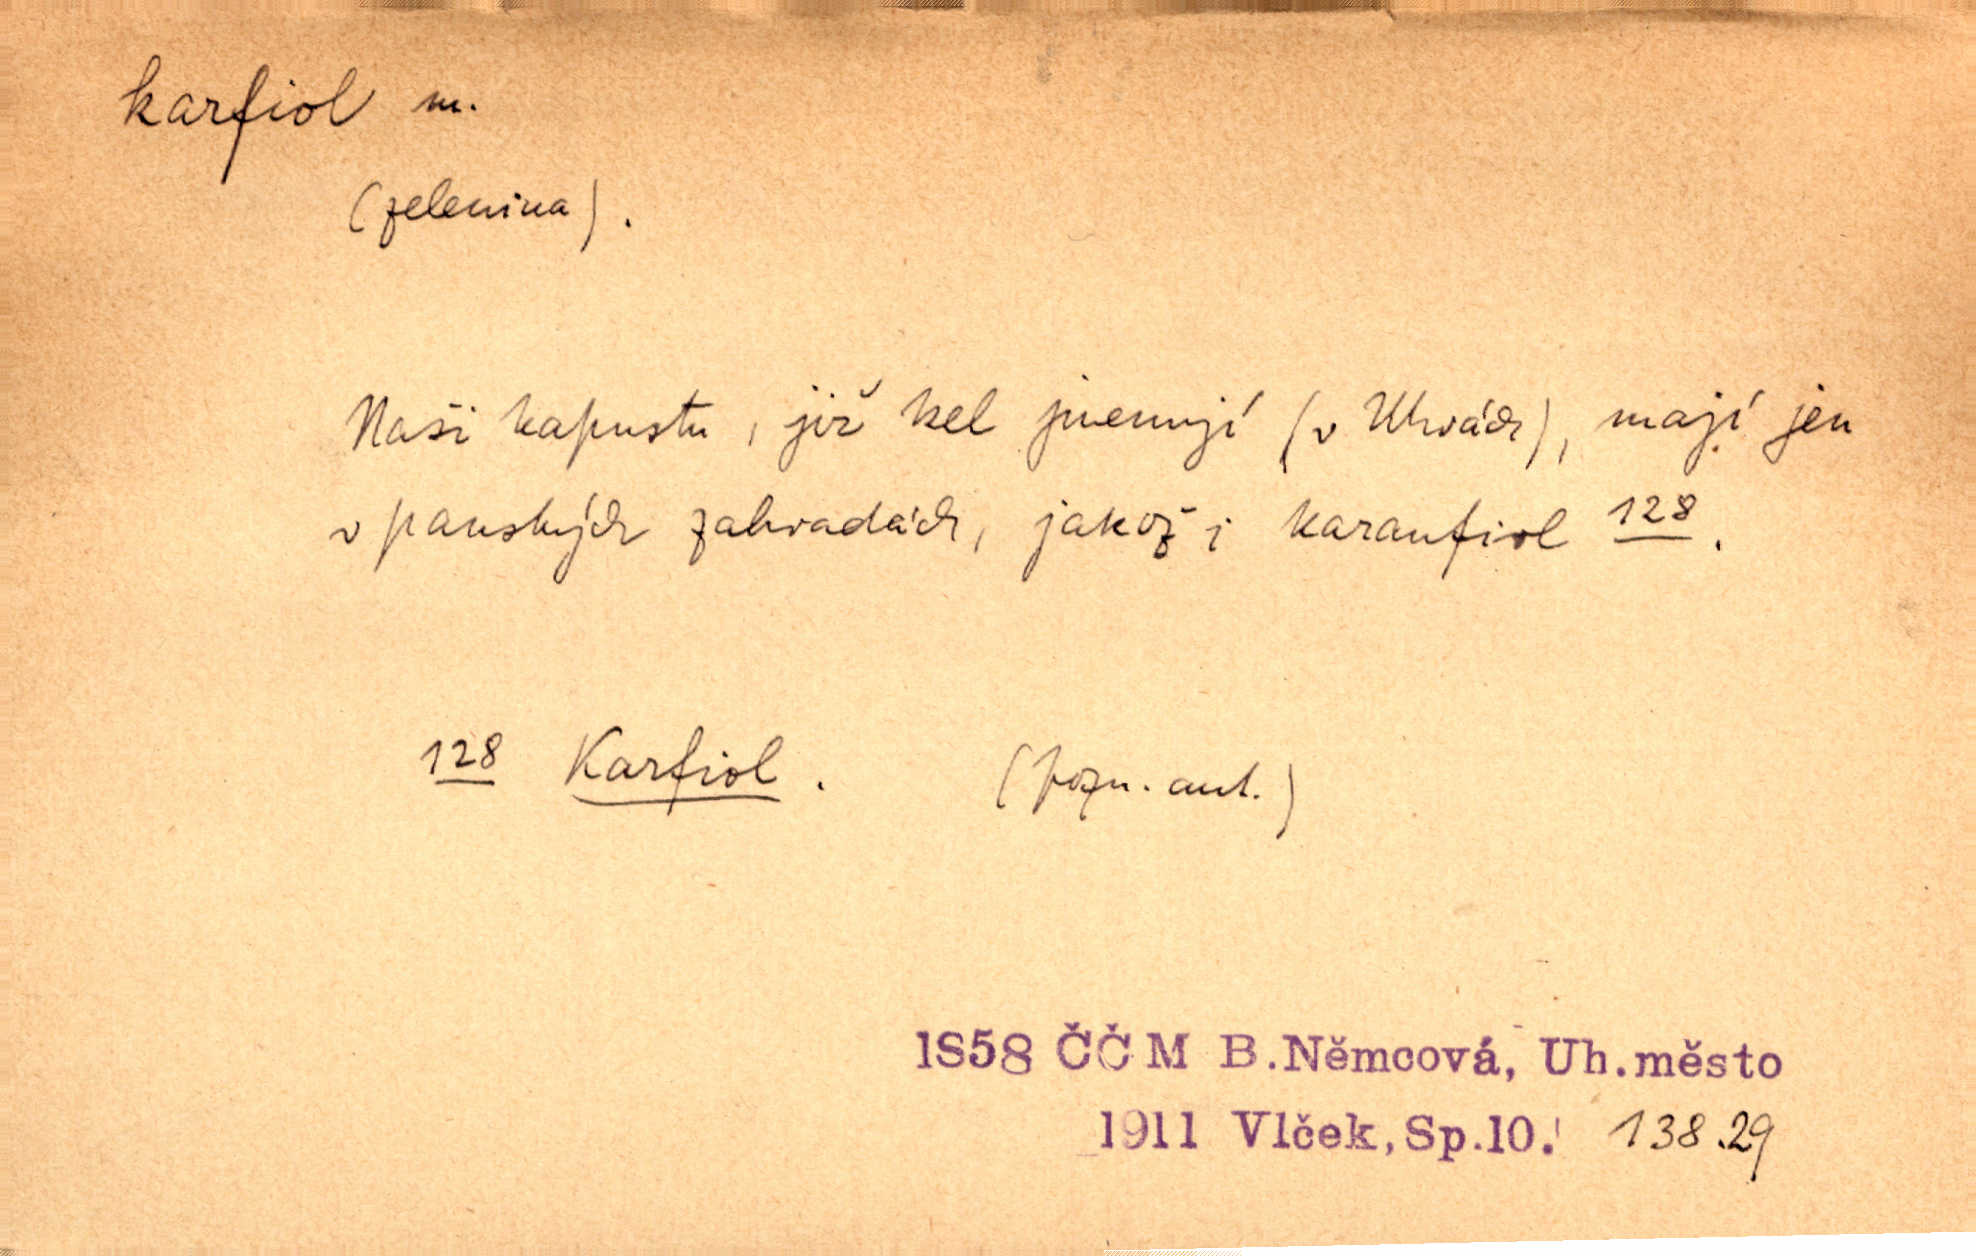 karfiol m.
(zelenina).
Naši kapustu, již kel jmenují (v Uhrách), mají jen
v panských zahradách, jakož i karanfiol 128.
128 Karfiol. (pozn. aut.)
1858 ČČM B.Němcová, Uh.město
1911 Vlček, Sp.10. 138.29